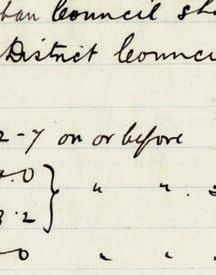 ban Council sh
District Counci
2-7 on or before
4.0 } " "
3.2
0 " "